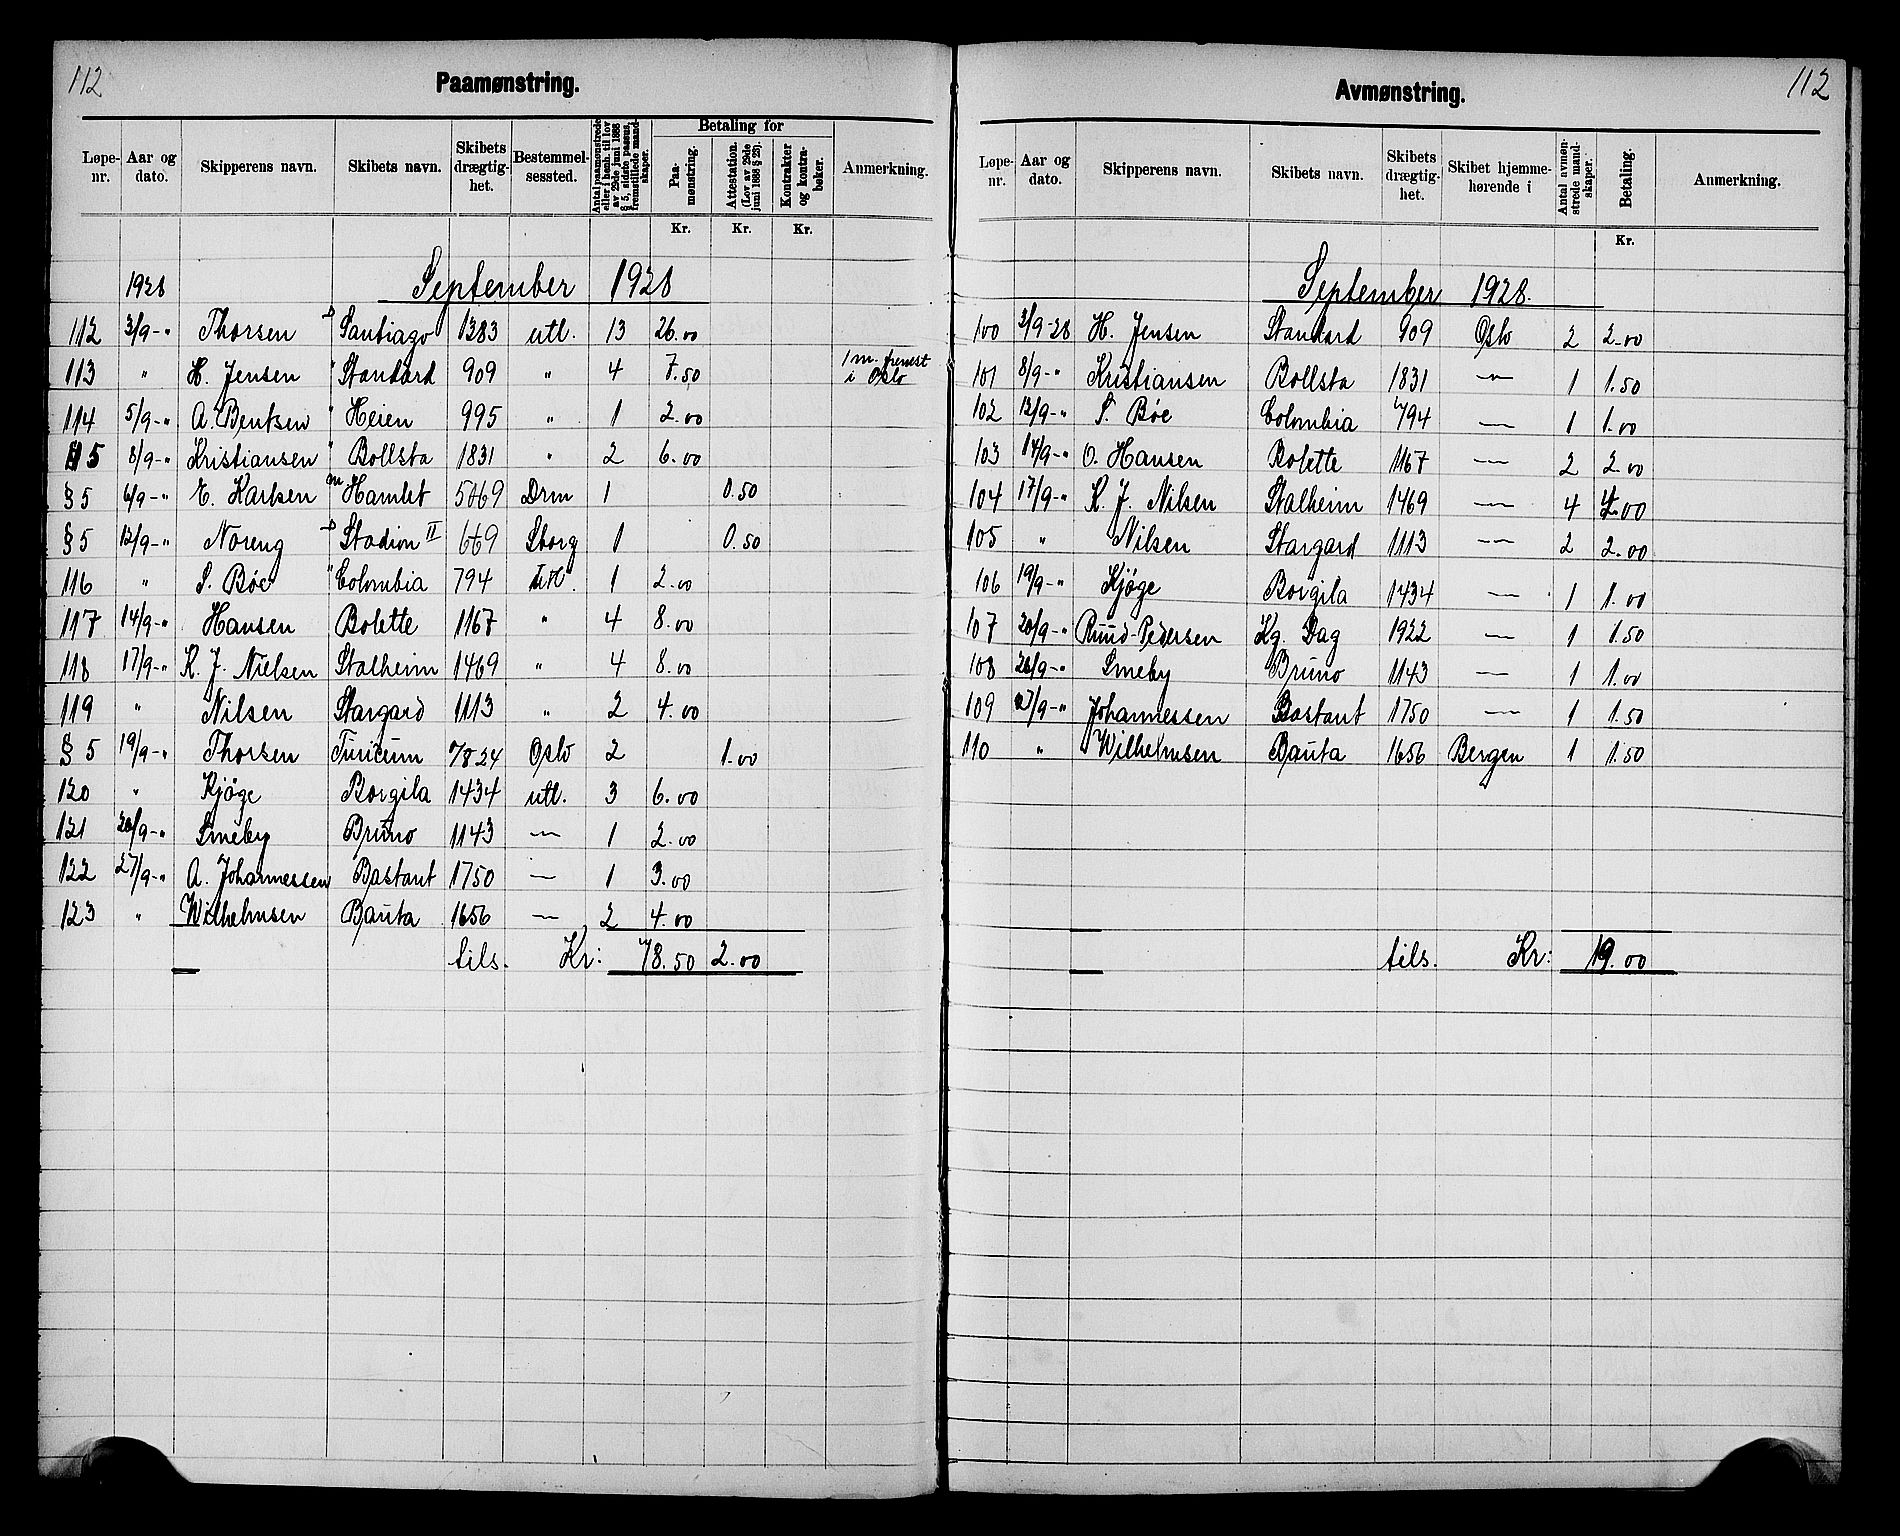 112
Paamønstring.
Løpe-nr. Aar og dato. Skipperens navn. Skibets navn. Skibets drægtig-het. Bestemmel-sessted. Antal paamønstrede eller i henh. til lov av 29de juni 1888 § 5, sidste passus, fremstillede mand-skaper. Betaling for Paa-mønstring. Attestation. (Lov av 29de juni 1888 § 23). Kontrakter og kontra-bøker. Anmerkning.
Kr. Kr. Kr.
1928 September 1928
112 3/9-" Thorsen D Santiago 1383 utl. 13 26.00
113 " H. Jensen " Standard 909 " 4 7.50 1 m. fremst i Oslo
114 5/9-" A. Bentsen " Heien 995 " 1 2.00
115 8/9-" Kristiansen " Bollsta 1831 " 2 6.00
§5 6/9-" E. Karlsen m Hamlet 5069 Drm 1 0.50
§5 12/9-" Noreng D Stadion II 669 Sborg 1 0.50
116 " S. Bøe " Colombia 794 Utl. 1 2.00
117 14/9-" Hansen Bolette 1167 " 4 8.00
118 17/9-" K. J. Nielsen Stalheim 1469 " 4 8.00
119 " Nilsen Stargard 1113 " 2 4.00
§ 5 19/9-" Thorsen Turicum 7824 Oslo 2 1.00
120 " Kjøge Borgila 1434 utl. 3 6.00
121 26/9-" Smeby Bruno 1143 — 1 2.00
122 27/9-" A. Johannessen Bastant 1750 — 1 3.00
123 " Wilhelmsen Bauta 1656 — 2 4.00
— tils. Kr: 78.50 2.00
112
Avmønstring.
Løpe-nr. Aar og dato. Skipperens navn. Skibets navn. Skibets drægtig-het. Skibet hjemme-hørende i Antal avmøn-strede mand-skaper. Betaling. Anmerkning.
Kr.
September 1928.
100 3/9-28 H. Jensen Standard 909 Oslo 2 2.00
101 8/9-" Kristiansen Bollsta 1831 — 1 1.50
102 12/9-" S. Bøe Colombia 794 — 1 1.00
103 14/9-" O. Hansen Bolette 1167 — 2 2.00
104 17/9-" K. J. Nilsen Stalheim 1469 — 4 4.00
105 " Nilsen Stargard 1113 — 2 2.00
106 19/9-" Kjøge Borgila 1434 — 1 1.00
107 20/9-" Ruud-Pedersen Kg. Dag 1922 — 1 1.50
108 26/9-" Smeby Bruno 1143 — 1 1.00
109 27/9-" Johannessen Bastant 1750 — 1 1.50
110 " Wilhelmsen Bauta 1656 Bergen 1 1.50
— tils. Kr: 19.00